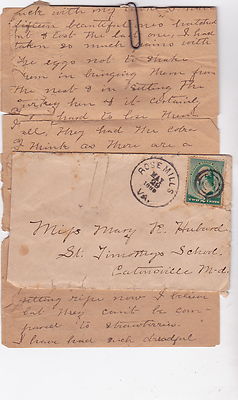 luck with my
fifteen beautiful ones hatched
out & lost the last one, I had
taken so much pains with
the eggs not to shake
them in bringing them from
the nest & in setting the
turkey hen & it certainly
is hard to lose them
all, they had the
I think as there are a
ROSE MILLS
MAY
VA.
Miss Mary E.
St. Timothy's School.
Catonsville M-d.
getting ripe now I believe
but they can't be com-
pared to strawberries.
I have had such dreadful